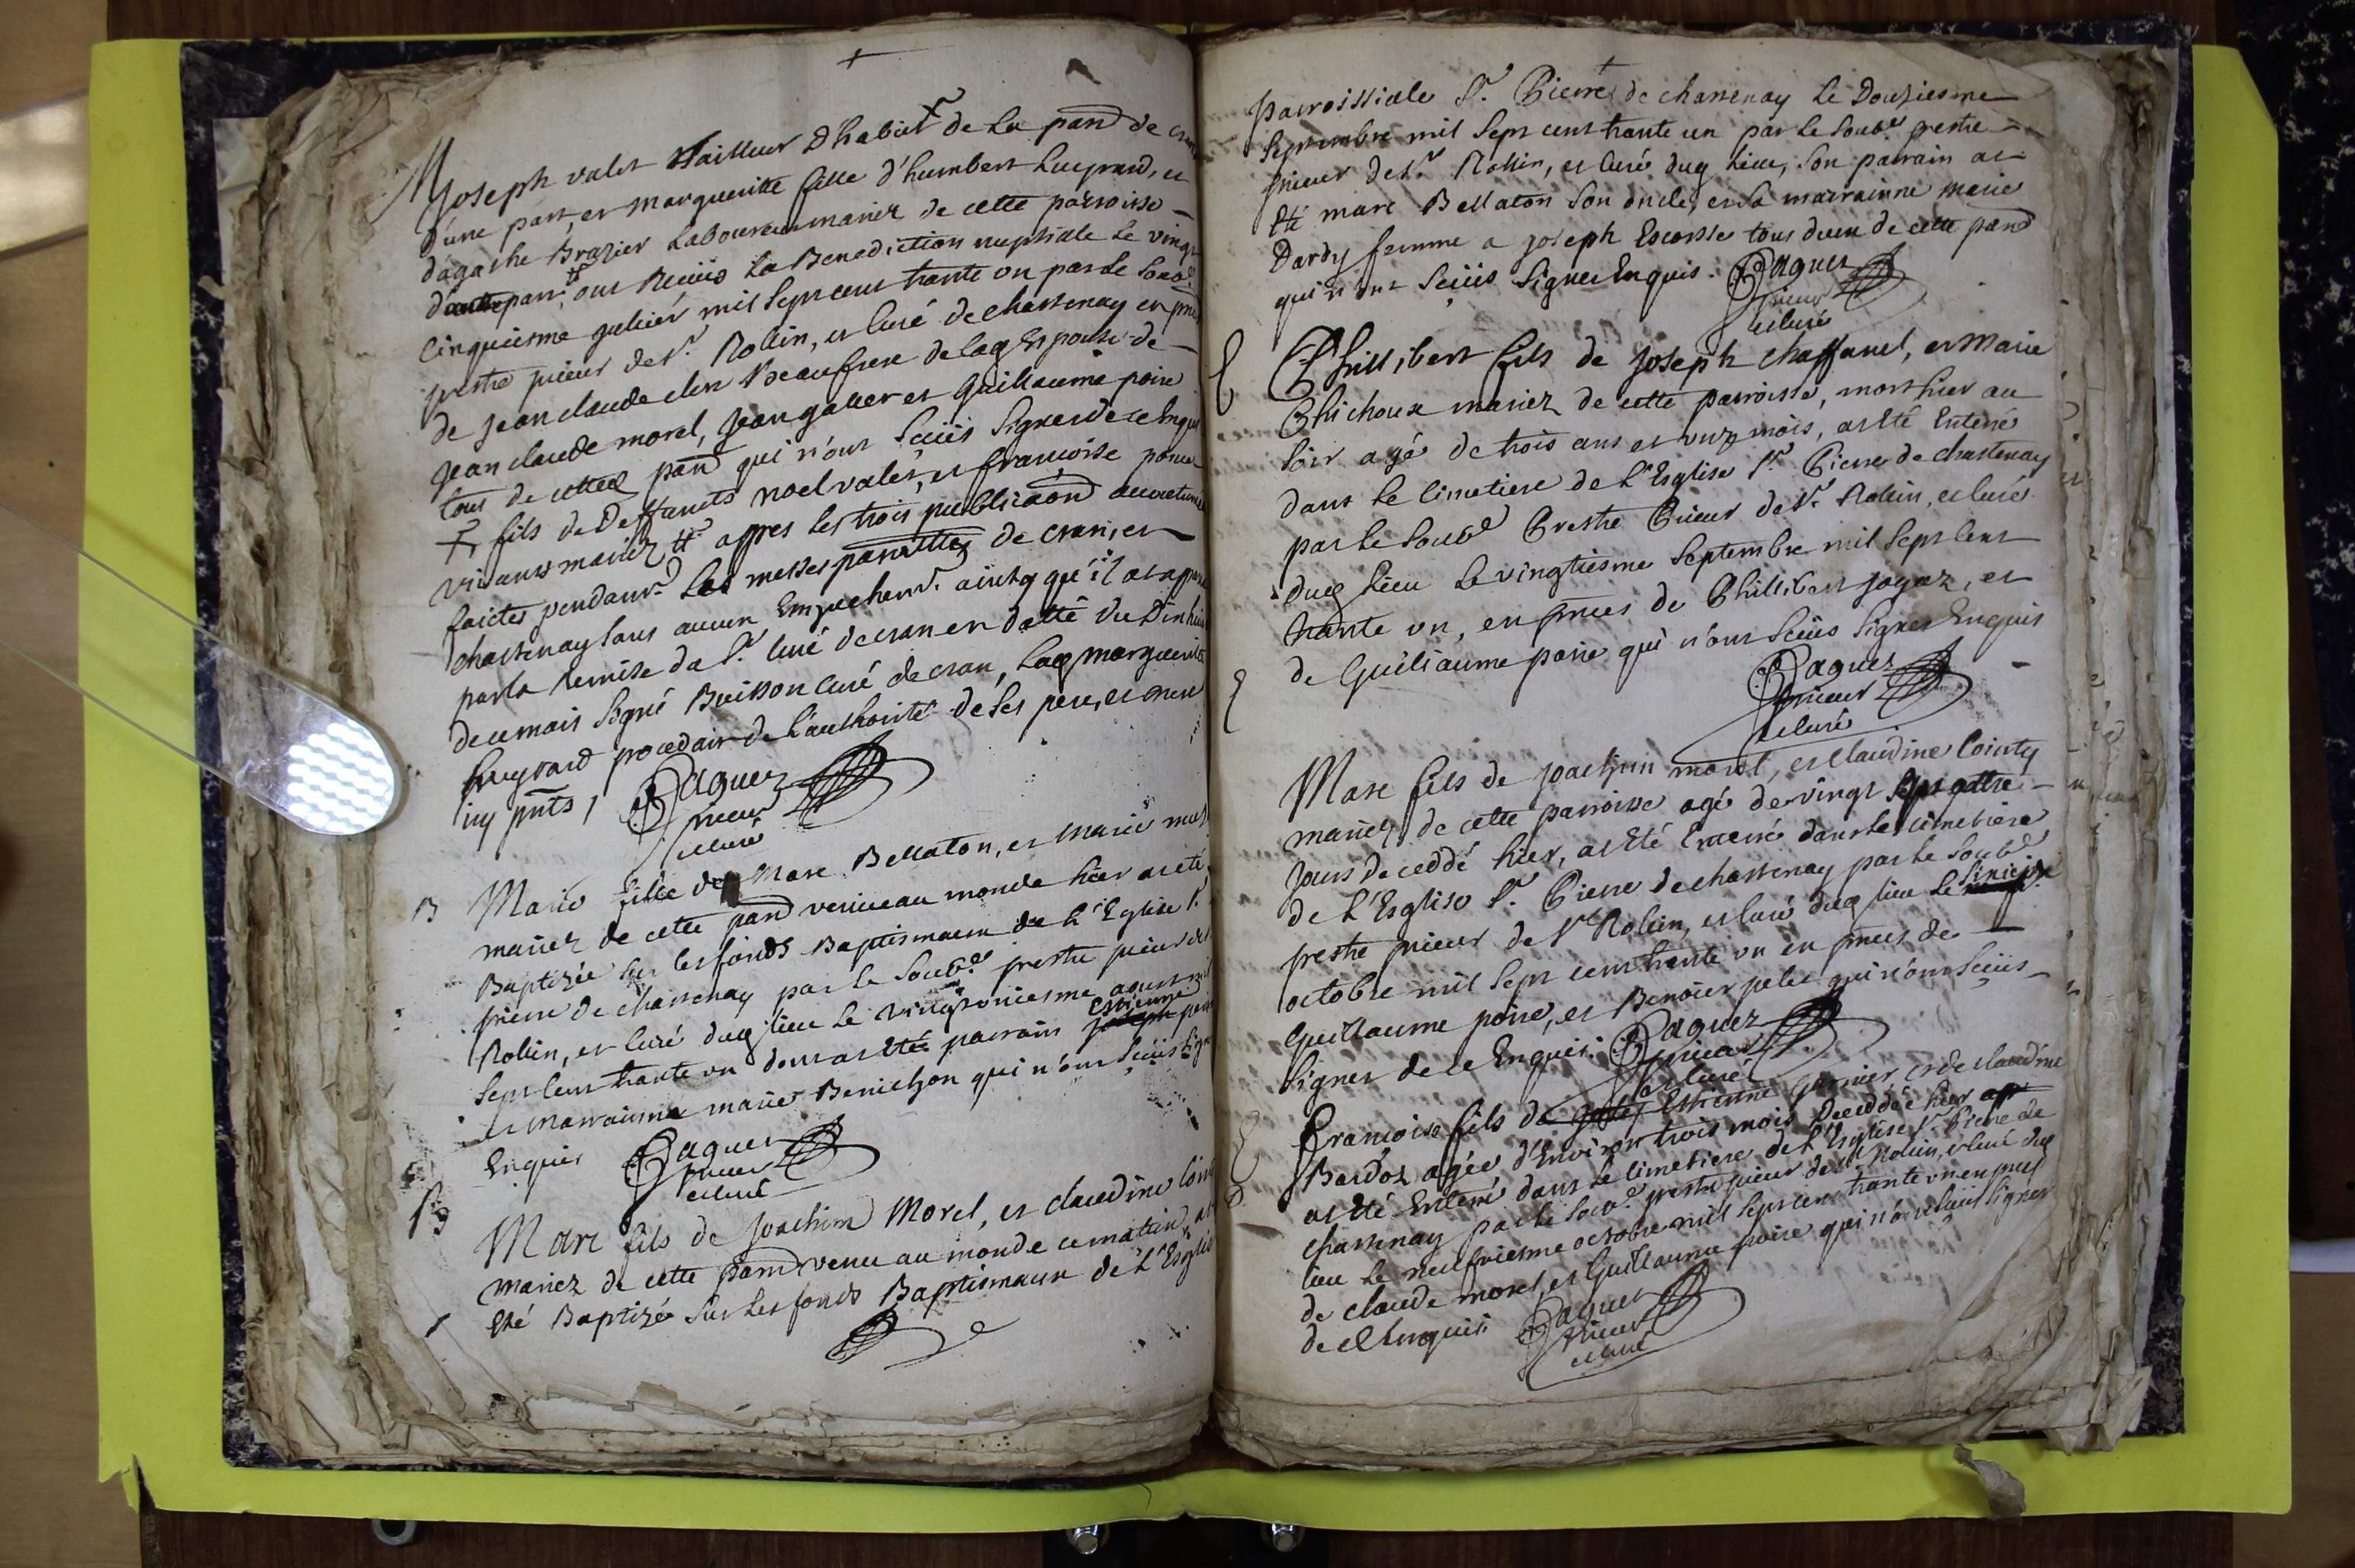 M Joseph valet Tailleur D'habit de la parr de cran
d'une part, et marguerite fille d'humbert Lugrand, et
d'agathe Brazier Laboureurs mariez de cette parroisse
d'autre part, ont Receüs La Benediction nuptiale Le vingt
cinquiesme juliier mil sept cent trante un par Le soub.é
prestre prieur de S.t Robin, et curé de chastenay en pnce
de Jean claude clere Beaufrere de laq Espouse de
Jean claude morel, Jean galler et Guillaume poire
tous de cette parr qui n'ont sceüs signer de ce Enquis
fils de Deffunts noel valet, et françoise
vivants mariez apres Les trois publicaôns accoutumées
faictes pendant Les messes de cran, et
chastenay sans aucun Empechem.t ainsy qu'il at
par la Remise da S.r Curé de cran en datte du Dinhui
de ce mois signé Buisson curé de cran, Laq marguerite
Lugrand procedait de L'authorité de ses pere, et mere
icy pnts Paguez
prieur
et curé
B Marie fille de Marc Bellaton, et Marie
mariez de cette parr venüe au monde hier at été
Baptizée sur les fonds Baptismaux de L'Eglise S.t
pierre de chastenay par le soub.é prestre prieur de S.t
Robin, et Curé dud lieu Le vingt onziesme aoust mil
sept cent trante un dont at Eté parrain Estienne
et marrainne marie Benichon qui n'ont sceüs signer
Enquis Paguez
prieur
et curé
B Marc fils de Joachim Morel, et claudine Coint
mariez de cette parr venu au monde ce matin, at
Eté Baptizé sur les fonds Baptismaux de L'Esglise
parroissiale S.t Pierre de chastenay Le Douziesme
Septembre mil Sept cent trante un par le soub.é prestre
prieur de S.t Robin, et curé dug Lieu, son parrain at
Eté marc Bellaton son oncle, et sa marrainne marie
Dardy femme a joseph Escosse tous deux de cette parr
qui n'ont Sceüs Signer Enquis. Paguez
prieur
et curé
E Phillibert fils de Joseph chaffanel, et Marie
Chichoux mariez de cette parroisse, mort hier au
soir agé de trois ans et onze mois, at Eté Enterré
dans Le Cimetiere de L'Esglise S.t Pierre de chastenay
par le soub.é Prestre Prieur de S.t Robin, et curé
dug Lieu Le vingtiesme Septembre mil Sept cent
trante un, en pnces de Phillibert jogaz, et
de Guiliaume poire qui n'ont Sceüs signer Enquis
Paguez
prieur
et curé
E Marc fils de Joachim morel, et Claudine Cointy
mariez de cette parroisse agé de vingt quatre
jours deceddé hier, at Eté Enterré dans le cimetiere
de L'Esglise S.t Pierre de chastenay par le soub.é
prestre prieur de S.t Robin, et curé dug lieu Le sixie
octobre mil Sept cent trante un en pnces de
Guillaume poire, et Benoier qui n'ont Sceüs
signer de ce Enquis. Paguez
prieur
et curé
E Françoise fils de Estienne Garnier, et de claudine
Bardoz agée d'Environ trois mois Deceddée hier
at Eté Enterré dans Le Cimetiere de L'Esglise S.t Pierre de
chastenay par le soub.é prestre prieur de S.t Robin, et curé dug
lieu Le neufviesme octobre mil Sept cent trante un en pnces
de claude morel, et Guillaume poire qui n'ont sceüs signer
de ce Enquis Paguez
prieur
et curé